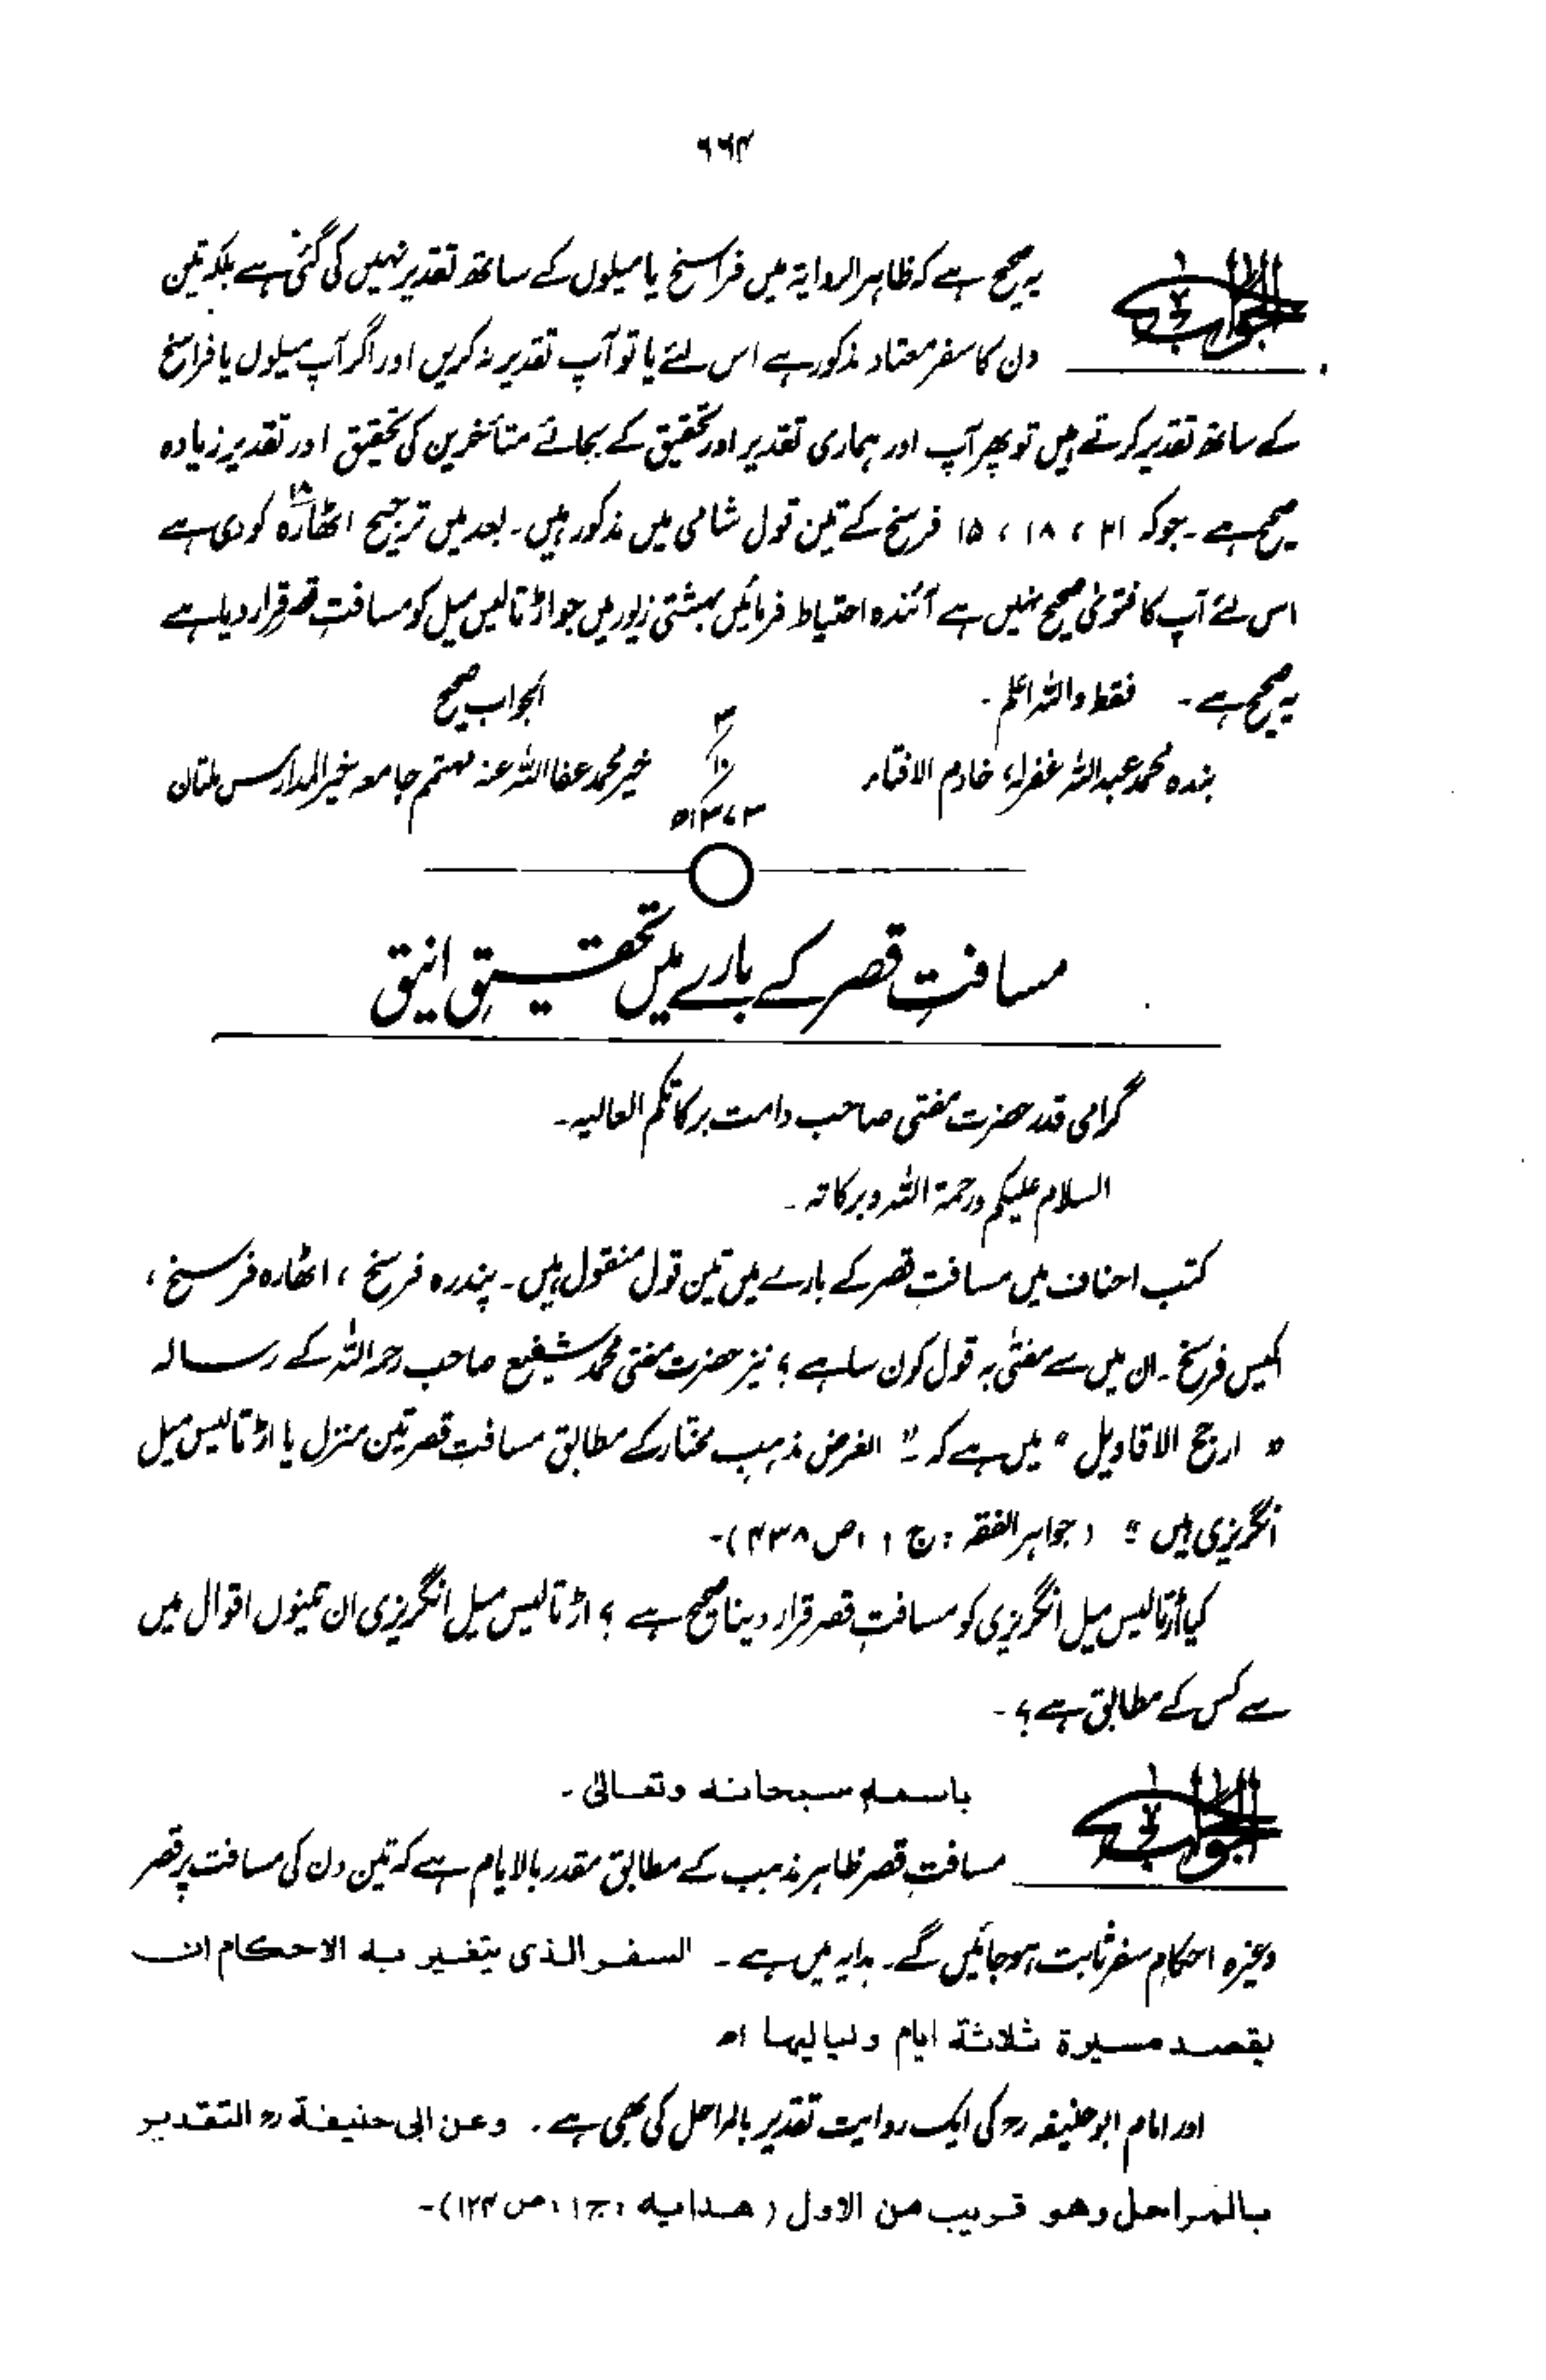 ۶۶۴
الجواب
یہ صحیح ہے کہ ظاہر الروایۃ میں فراسخ یا میلوں کے ساتھ تقدیر نہیں کی گئی ہے بلکہ تین
دن کا سفر معتاد مذکور ہے اس لئے یا تو آپ تقدیر نہ کریں اور اگر آپ میلوں یا فراسخ
کے ساتھ تقدیر کرتے ہیں تو پھر آپ اور ہماری تقدیر اور تحقیق کے بجائے متأخرین کی تحقیق اور تقدیر زیادہ
صحیح ہے۔ جو کہ ۲۱ ، ۱۸ ، ۱۵ فرسخ کے تین قول شامی میں مذکور ہیں۔ بعد میں ترجیح اٹھارہ ۱۸ کو دی ہے
اس لئے آپ کا فتویٰ صحیح نہیں ہے آئندہ احتیاط فرمائیں بہشتی زیور میں جو اڑتالیس میل کو مسافتِ قصر قرار دیا ہے
یہ صحیح ہے۔ فقط واللہ اعلم۔ الجواب صحیح
بندہ محمد عبداللہ غفرلہ، خادم الافتاء ۳/۱۰/۱۳۷۳ھ خیر محمد عفا اللہ عنہ مہتمم جامعہ خیر المدارس ملتان
مسافتِ قصر کے بارے میں تحقیقِ انیق
گرامی قدر حضرت مفتی صاحب دامت برکاتکم العالیہ۔
السلام علیکم ورحمۃ اللہ وبرکاتہ۔
کتب احناف میں مسافتِ قصر کے بارے میں تین قول منقول ہیں۔ پندرہ فرسخ ، اٹھارہ فرسخ ،
اکیس فرسخ۔ ان میں سے مفتٰی بہ قول کون سا ہے ؟ نیز حضرت مفتی محمد شفیع صاحب رحمہ اللہ کے رسالہ
" ارجح الاقاویل " میں ہے کہ :" الغرض مذہب مختار کے مطابق مسافتِ قصر تین منزل یا اڑتالیس میل
انگریزی ہیں " ( جواہر الفقہ : ج ۱ ، ص ۴۳۸)۔
کیا اڑتالیس میل انگریزی کو مسافتِ قصر قرار دینا صحیح ہے ؟ اڑتالیس میل انگریزی ان تینوں اقوال میں
سے کس کے مطابق ہے ؟۔
الجواب
باسمہٖ سبحانہ وتعالیٰ۔
مسافتِ قصر ظاہر مذہب کے مطابق مقدر بالایام ہے کہ تین دن کی مسافت پر قصر
وغیرہ احکامِ سفر ثابت ہوجائیں گے۔ ہدایہ میں ہے۔ السفر الذی یتغیر بہ الاحکام ان
یقصد مسیرة ثلاثة ایام ولیالیہا اھ
اور امام ابوحنیفہ رح کی ایک روایت تقدیر بالمراحل کی بھی ہے۔ وعن ابی حنیفة رح التقدیر
بالمراحل وھو قریب من الاول ( ھدایہ ، ج ۱ ، ص ۱۲۴)۔